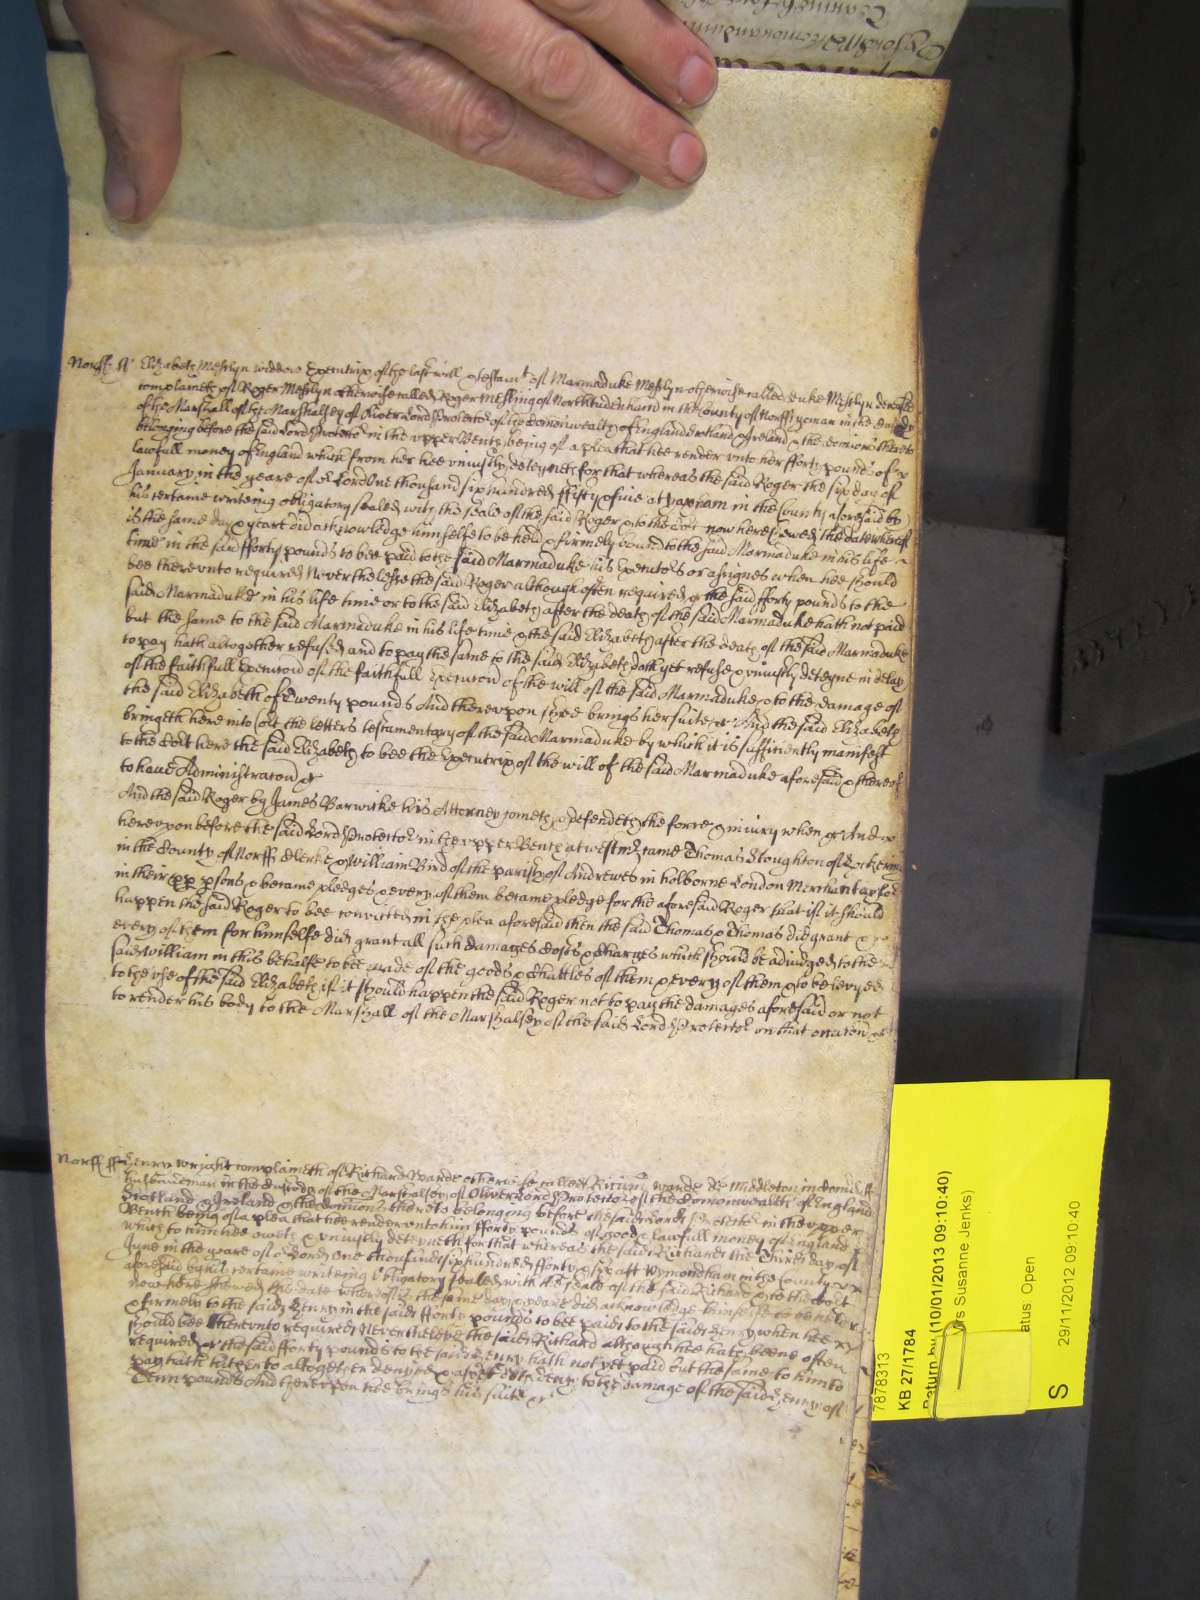 Norff ss Elizabeth Messlyn widdow Executrix of the last will & testamt of Marmaduke Messlyn otherwise called Duke Messlyn deceased
complaineth of Roger Messlyn otherwise called Roger Messling of Northtudenham in the County of Norff yeoman in the Custody
of the Marshall of the Marshalsey of Oliver Lord Protector of the Comonwealth of England Scotland & Ireland & the dominions thereto
belonging before the said Lord Protector in the upper Bench being of a plea that hee render unto her fforty pounds of
lawfull money of England which from her hee uniustly deteyneth for that whereas the said Roger the six day of
January in the yeare of or Lord One thousand six hundred ffifty & five at in the County aforesaid by
his certaine writeing obligatory sealed with the seale of the said Roger & to the Cort now here shewed the date whereof
is the same day & yeare did acknowledge himselfe to be held & firmely bound to the said Marmaduke in his life
time in the said fforty pounds to bee paid to the said Marmaduke his Executors or assignes when hee should
bee thereunto required Neverthelesse the said Roger although often required &c the said fforty pounds to the
said Marmaduke in his life time or to the said Elizabeth after the death of the said Marmaduke hath not paid
but the same to the said Marmaduke in his life time & the said Elizabeth after the death of the said Marmaduke
to pay hath altogether refused and to pay the same to the said Elizabeth doth yet refuse & uniustly deteyne in delay
of the faithfull Execucon of the faithfull Execucon of the will of the said Marmaduke & to the damage of
the said Elizabeth of Twenty pounds And thereupon shee brings her suite &c And the said Elizabeth
bringeth here into Cort the letters testamentary of the said Marmaduke by which it is sufficiently manifest
to the Cort here the said Elizabeth to bee the Executrix of the will of the said Marmaduke aforesaid & thereof
to have Administracon &c
And the said Roger by James Barwicke his Attorney cometh & defendeth the force & iniury when &c And
hereupon before the said Lord Protector in the upper Bench at westmr came Thomas Stoughton of
in the County of Norff Clerke & William Bird of the parish of Andrewes in holborne London Merchantaylor
in their pp psons & became pledges & every of them became pledge for the aforesaid Roger that if it should
happen the said Roger to bee convicted in the plea aforesaid then the said Thomas & Thomas did grant &
every of them for himselfe did grant all such damages Costs & Charges which should be adiudged to the
said William in this behalfe to bee made of the goods & Chattles of them & every of them & to be levyed
to the use of the said Elizabeth if it should happen the said Roger not to pay the damages aforesaid or not
to render his body to the Marshall of the Marshalsey of the said Lord Protector on that occacon &c
Norff ss Henry Wright complaineth of Richard Warde otherwise called Richard Warde de Middleton in Com
husbandman in the Custody of the Marshalsey of Oliver Lord Protector of the Comonwealth of England
Scotland & Ireland & the dominions thereto belonging before the said Lord Protector in the upper
Bench being of a plea that hee render unto him fforty pounds of good & lawfull money of England
which to him hee oweth & uniustly deteyneth for that whereas the said Richard the Third day of
June in the yeare of or Lord One thousand six hundred fforty & six att Wymondham in the County
aforesaid by his certaine writeing Obligatory sealed with the seale of the said Richard & to the Cort
now here shewed the date whereof is the same day & yeare did acknowledge himselfe to be held
& firmely to the said Henry in the said fforty pounds to bee paid to the said Henry when hee
should bee thereunto required Neverthelesse the said Richard although hee hath beene often
required &c the said fforty pounds to the said Henry hath not yet paid but the same to him to
pay hath hitherto altogether denyed & as yet doth deny to the damage of the said Henry of
Tenn pounds And thereupon hee brings his suite &c
7878313
KB 27/1784
Return by (10/01/2013 09:10:40)
Mrs Susanne Jenks)
atus: Open
S
29/11/2012 09:10:40